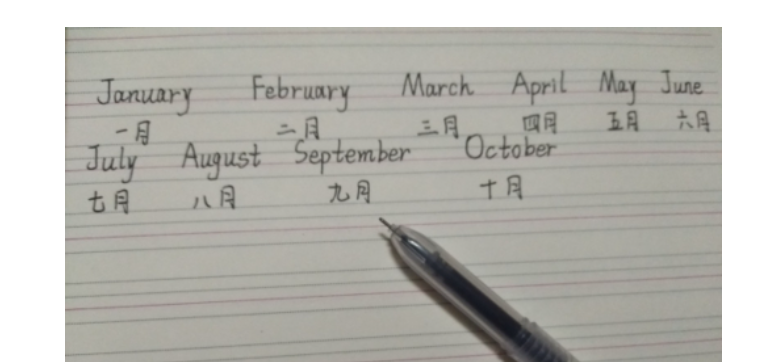 January February March April May June
一月 二月 三月 四月 五月 六月
July August September October
七月 八月 九月 十月